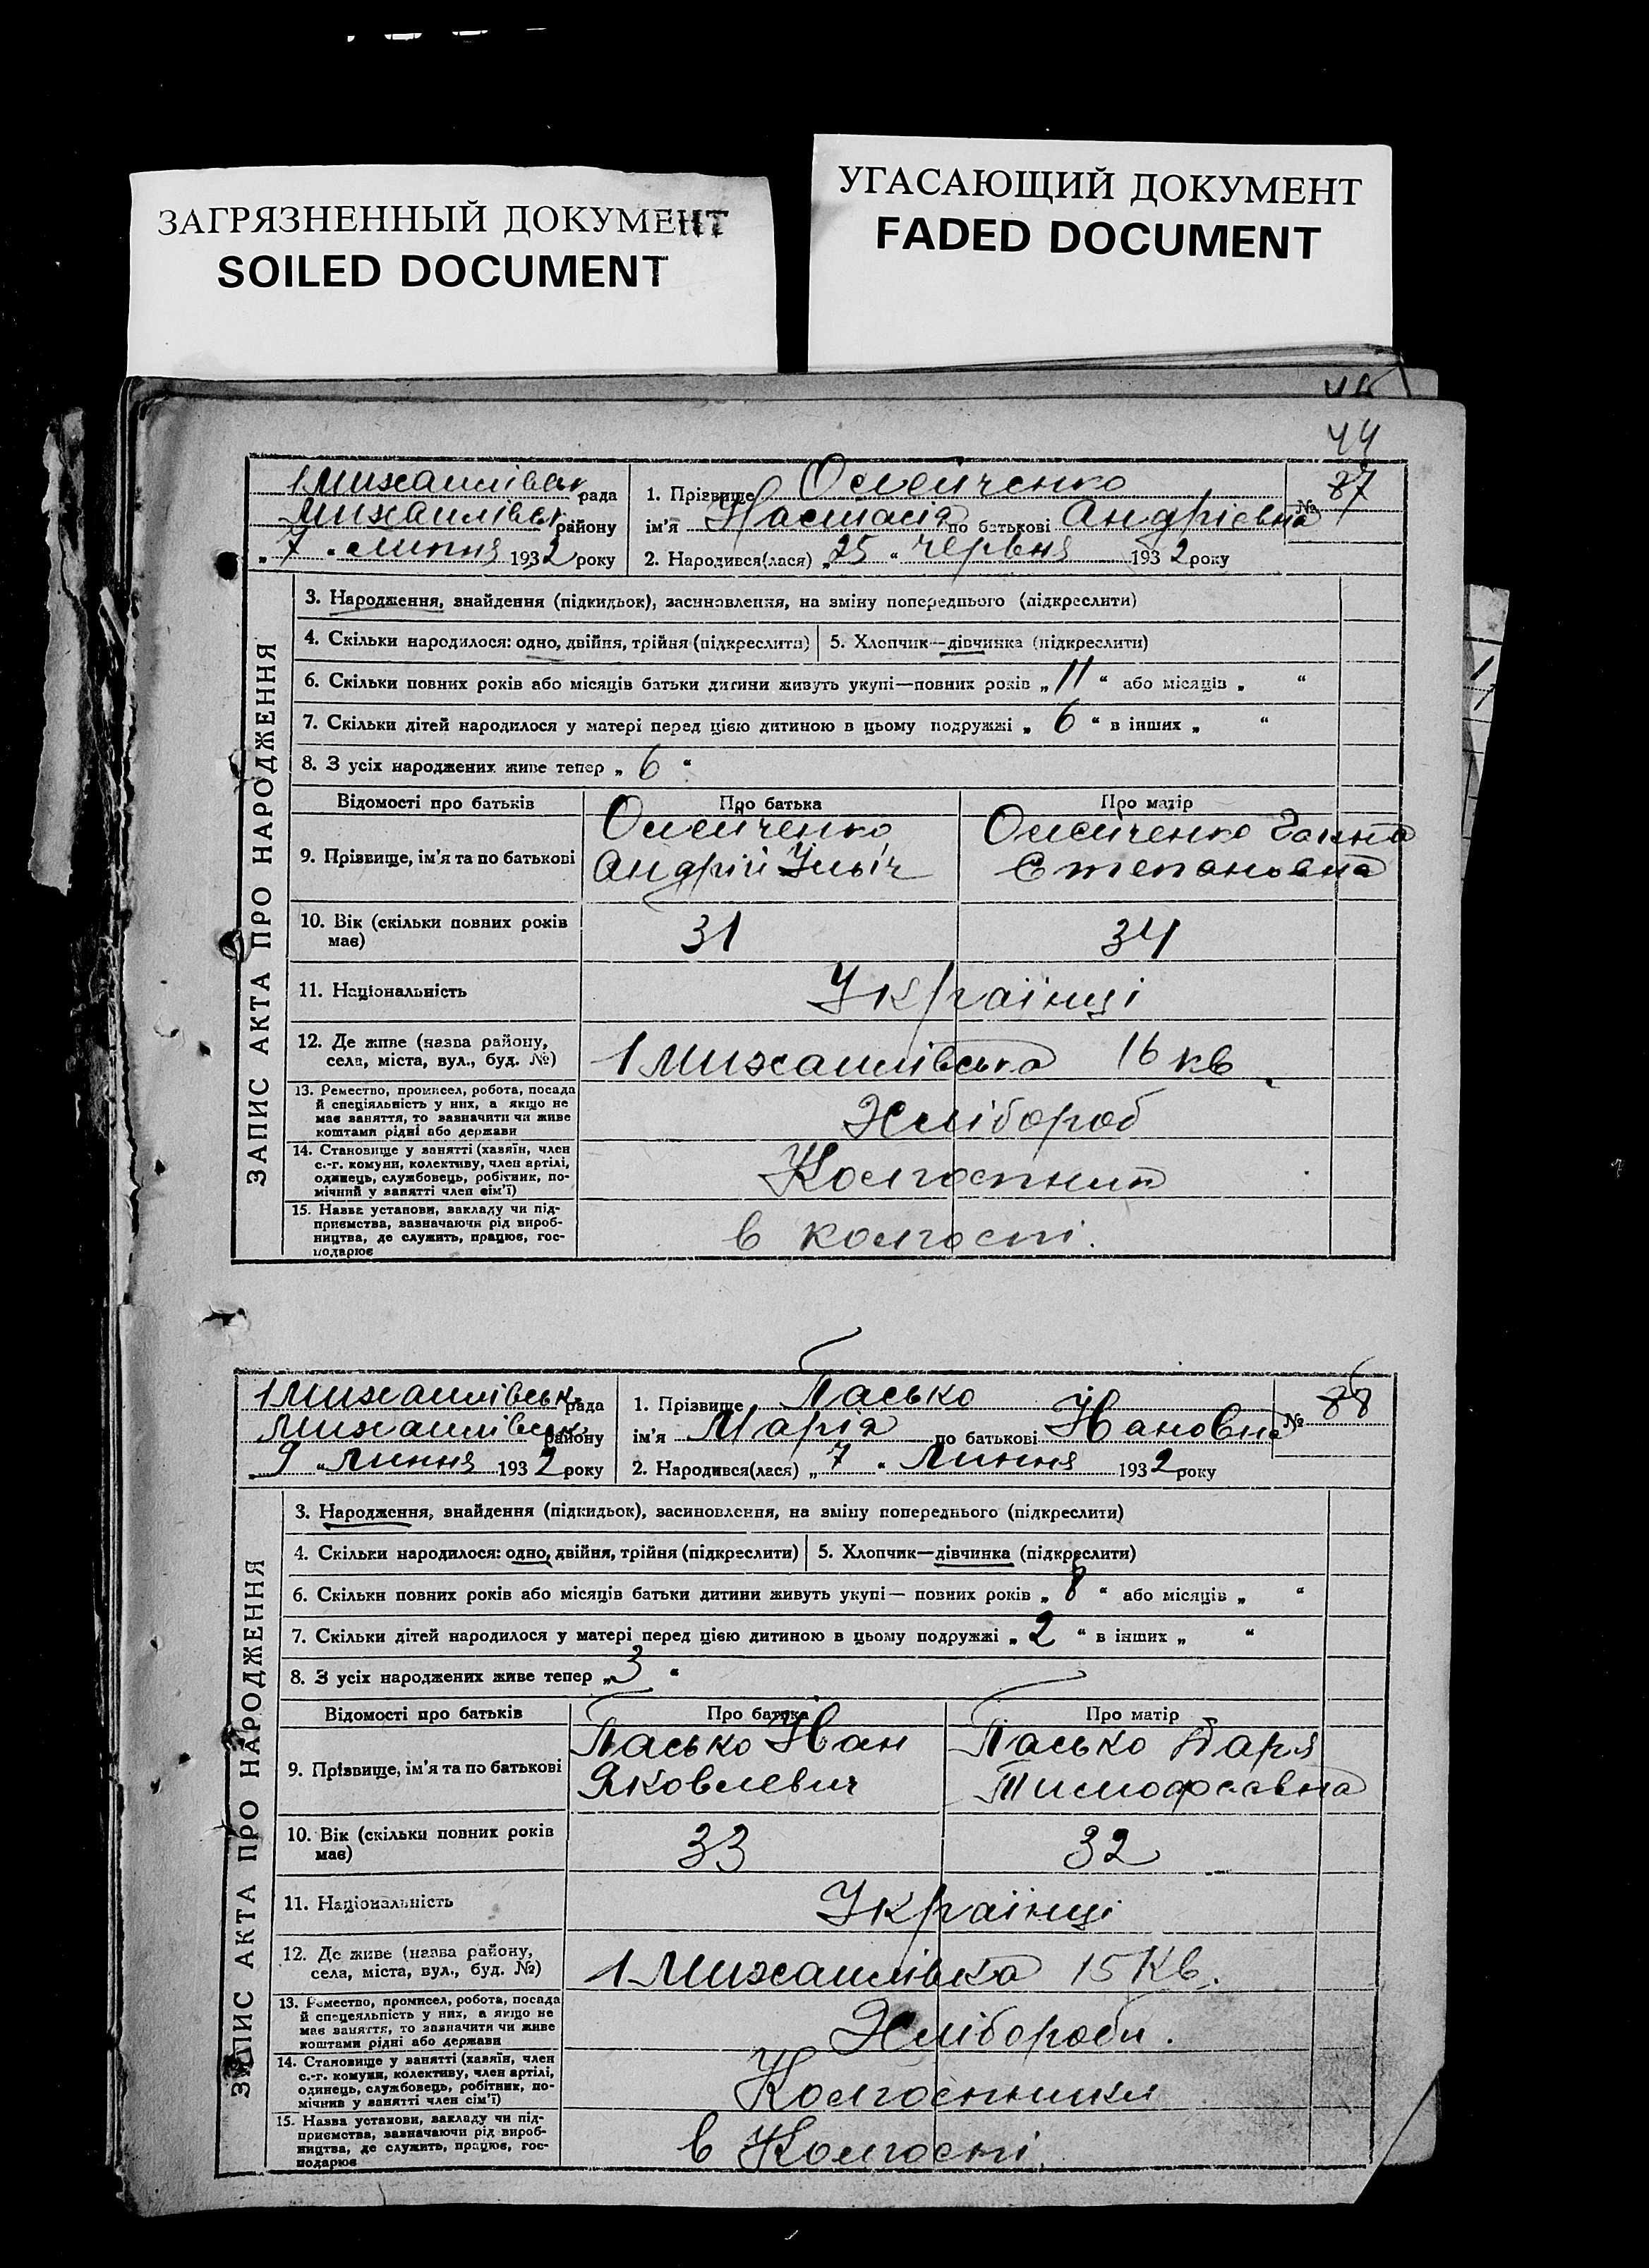 ЗАГРЯЗНЕННЫЙ ДОКУМЕНТ
SOILED DOCUMENT
УГАСАЮЩИЙ ДОКУМЕНТ
FADED DOCUMENT
44
1 Михайлівськ рада
Михайлівськ району
„ 7 “ липня 1932 року
1. Прізвище Олейченко
ім'я Настасія по батькові Андрієвна
2. Народився(лася) „ 25 “ червня 1932 року
№ 87
ЗАПИС АКТА ПРО НАРОДЖЕННЯ
3. Народження, знайдення (підкидьок), засиновлення, на зміну попереднього (підкреслити)
4. Скільки народилося: одно, двійня, трійня (підкреслити)
5. Хлопчик—дівчинка (підкреслити)
6. Скільки повних років або місяців батьки дитини живуть укупі—повних років „ 11 “ або місяців „ “
7. Скільки дітей народилося у матері перед цією дитиною в цьому подружжі „ 6 “ в інших „ “
8. З усіх народжених живе тепер „ 6 “
Відомості про батьків
Про батька
Про матір
9. Прізвище, ім'я та по батькові
Олейченко
Андрій Ільіч
Олейченко Ганна
Степановна
10. Вік (скільки повних років
має)
31
34
11. Національність
Українці
12. Де живе (назва району,
села, міста, вул., буд. №)
1 Михайлівська 16 кв
13. Ремество, промисел, робота, посада
й спеціяльність у них, а якщо не
має заняття, то зазначити чи живе
коштами рідні або держави
Хлібороб
14. Становище у занятті (хазяїн, член
с.-г. комуни, колективу, член артілі,
одинець, службовець, робітник, по-
мічний у занятті член сім'ї)
Колгоспник
15. Назва установи, закладу чи під-
приємства, зазначаючи рід вироб-
ництва, де служить, працює, гос-
подарює
в колгоспі.
1 Михайлівськ рада
Михайлівськ району
„ 9 “ Липня 1932 року
1. Прізвище Пасько
ім'я Марія по батькові Івановна
2. Народився(лася) „ 7 “ Липня 1932 року
№ 88
ЗАПИС АКТА ПРО НАРОДЖЕННЯ
3. Народження, знайдення (підкидьок), засиновлення, на зміну попереднього (підкреслити)
4. Скільки народилося: одно, двійня, трійня (підкреслити)
5. Хлопчик—дівчинка (підкреслити)
6. Скільки повних років або місяців батьки дитини живуть укупі— повних років „ 8 “ або місяців „ “
7. Скільки дітей народилося у матері перед цією дитиною в цьому подружжі „ 2 “ в інших „ “
8. З усіх народжених живе тепер „ 3 “
Відомості про батьків
Про батька
Про матір
9. Прізвище, ім'я та по батькові
Пасько Іван
Яковлевич
Пасько Даря
Тимофеевна
10. Вік (скільки повних років
має)
33
32
11. Національність
Українці
12. Де живе (назва району,
села, міста, вул., буд. №)
1 Михайлівка 15 Кв.
13. Ремество, промисел, робота, посада
й спецеяльність у них, а якщо не
має заняття, то зазначити чи живе
коштами рідні або держави
Хлібороби.
14. Становище у занятті (хазяїн, член
с.-г. комуни, колективу, член артілі,
одинець, службовець, робітник, по-
мічник у занятті член сім'ї)
Колгоспники
15. Назва установи, закладу чи під-
приємства, зазначаючи рід вироб-
ництва, де служить, працює, гос-
подарює
в Колгоспі.